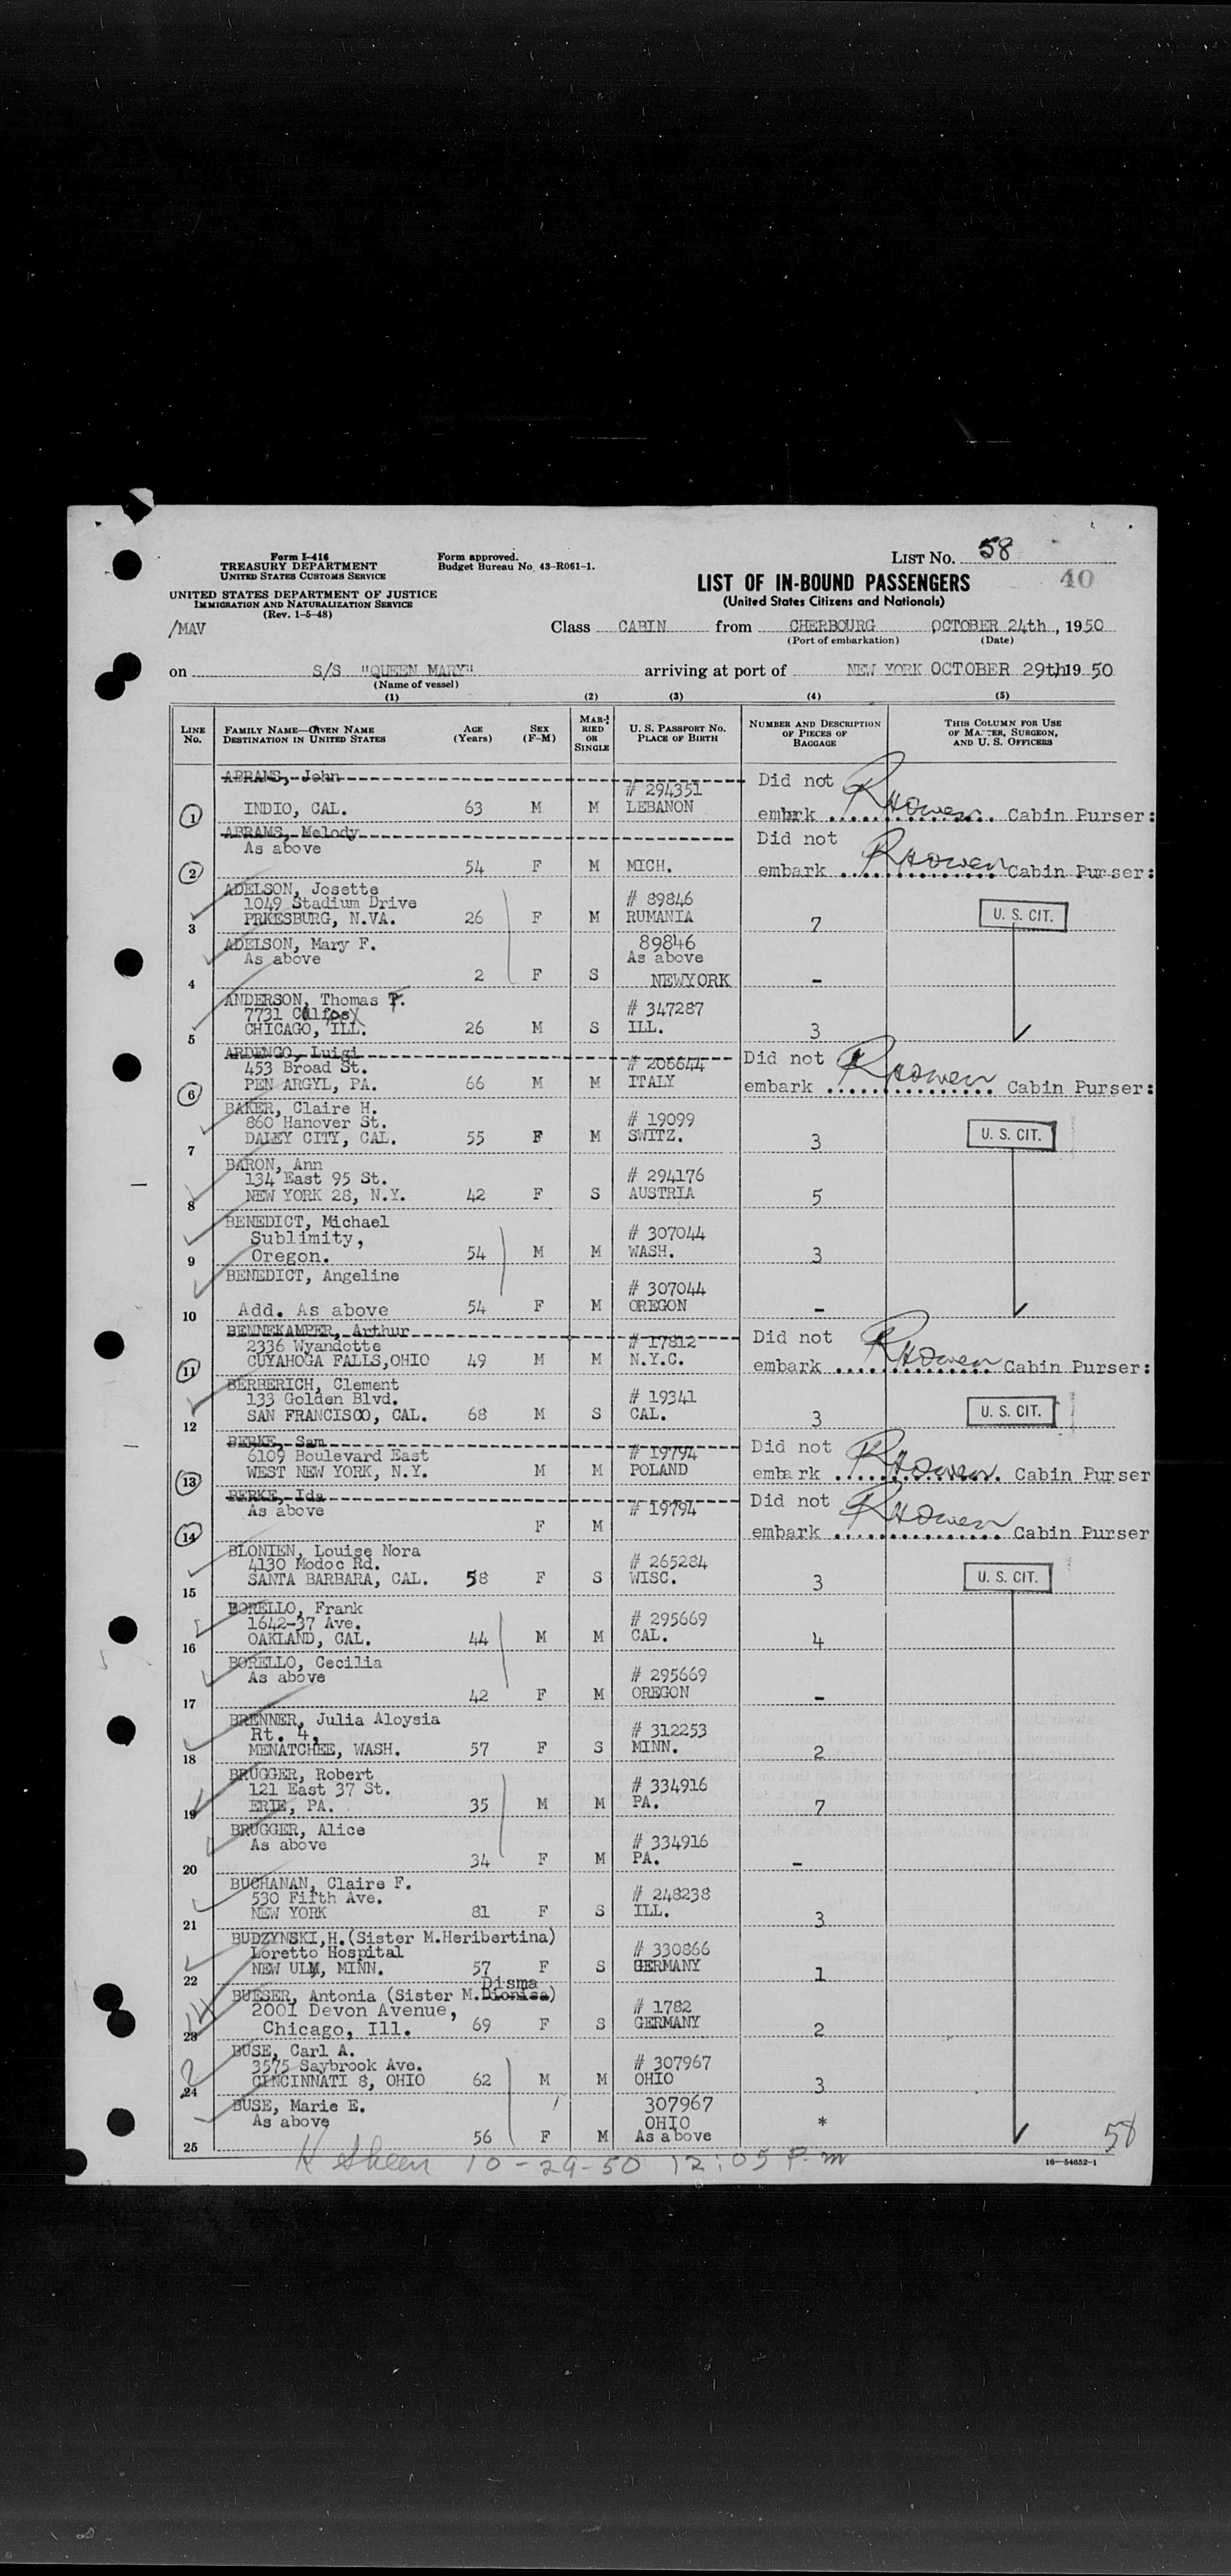 Form I-416
TREASURY DEPARTMENT
UNITED STATES CUSTOMS SERVICE
UNITED STATES DEPARTMENT OF JUSTICE
IMMIGRATION AND NATURALIZATION SERVICE
(Rev. 1-5-48)
/MAV
Form approved.
Budget Bureau No. 43-R061-1.
LIST No. 58
40
LIST OF IN-BOUND PASSENGERS
(United States Citizens and Nationals)
Class CABIN from CHERBOURG OCTOBER 24th, 1950
(Port of embarkation) (Date)
on S/S "QUEEN MARY" arriving at port of NEW YORK OCTOBER 29th 19 50
(Name of vessel)
(1) (2) (3) (4) (5)
LINE No. FAMILY NAME—GIVEN NAME DESTINATION IN UNITED STATES AGE (Years) SEX (F-M) MARRIED OR SINGLE U. S. PASSPORT No. PLACE OF BIRTH NUMBER AND DESCRIPTION OF PIECES OF BAGGAGE THIS COLUMN FOR USE OF MASTER, SURGEON, AND U. S. OFFICERS
ABRAMS, John Did not
# 294351
1 INDIO, CAL. 63 M M LEBANON embrk RHOwen Cabin Purser:
ABRAMS, Melody Did not
As above
2 54 F M MICH. embark RHOwen Cabin Purser:
ADELSON, Josette # 89846
1049 Stadium Drive
3 PRKESBURG, N.VA. 26 F M RUMANIA 7 U. S. CIT.
ADELSON, Mary F. 89846
As above As above
4 2 F S NEWYORK -
ANDERSON, Thomas P. # 347287
7731
5 CHICAGO, ILL. 26 M S ILL. 3
ARDENGO, Luigi # 206644 Did not
453 Broad St.
6 PEN ARGYL, PA. 66 M M ITALY embark RHOwen Cabin Purser:
BAKER, Claire H. # 19099
860 Hanover St.
7 DALEY CITY, CAL. 55 F M SWITZ. 3 U. S. CIT.
BARON, Ann # 294176
134 East 95 St.
8 NEW YORK 28, N.Y. 42 F S AUSTRIA 5
BENEDICT, Michael # 307044
Sublimity,
9 Oregon. 54 M M WASH. 3
BENEDICT, Angeline # 307044
10 Add. As above 54 F M OREGON -
BENNEKAMPER, Arthur # 17812 Did not
2336 Wyandotte
11 CUYAHOGA FALLS,OHIO 49 M M N.Y.C. embark RHOwen Cabin Purser:
BERBERICH, Clement # 19341
133 Golden Blvd.
12 SAN FRANCISCO, CAL. 68 M S CAL. 3 U. S. CIT.
BERKE, Sam # 19794 Did not
6109 Boulevard East
13 WEST NEW YORK, N.Y. M M POLAND embark RHOwen Cabin Purser
BERKE, Ida # 19794 Did not
As above
14 F M embark RHOwen Cabin Purser
BLONIEN, Louise Nora # 265284
4130 Modoc Rd.
15 SANTA BARBARA, CAL. 58 F S WISC. 3 U. S. CIT.
BORELLO, Frank # 295669
1642-37 Ave.
16 OAKLAND, CAL. 44 M M CAL. 4
BORELLO, Cecilia # 295669
As above
17 42 F M OREGON -
BRENNER, Julia Aloysia # 312253
Rt. 4,
18 MENATCHEE, WASH. 57 F S MINN. 2
BRUGGER, Robert # 334916
121 East 37 St.
19 ERIE, PA. 35 M M PA. 7
BRUGGER, Alice # 334916
As above
20 34 F M PA. -
BUCHANAN, Claire F. # 248238
530 Fifth Ave.
21 NEW YORK 81 F S ILL. 3
BUDZYNSKI,H.(Sister M.Heribertina) # 330866
Loretto Hospital
22 NEW ULM, MINN. 57 F S GERMANY 1
Disma
BUESER, Antonia (Sister M.Dionisa) # 1782
2001 Devon Avenue,
23 Chicago, Ill. 69 F S GERMANY 2
BUSE, Carl A. # 307967
3575 Saybrook Ave.
24 CINCINNATI 8, OHIO 62 M M OHIO 3
BUSE, Marie E. 307967
As above OHIO *
25 56 F M As above
58
10-29-50 12:05 P.m
16—54652-1